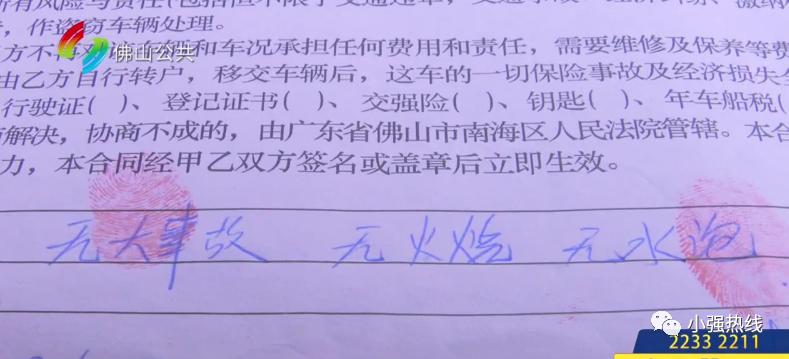 所有风险与责任(包括但不限于交通违章、交通事故、经济纠纷、缴纳
，作盗窃车辆处理。
方不再对 和车况承担任何费用和责任，需要维修及保养等费
佛山公共
由乙方自行转户，移交车辆后，这车的一切保险事故及经济损失全
行驶证( )、登记证书( )、交强险( )、钥匙( )、年车船税(
解决，协商不成的，由广东省佛山市南海区人民法院管辖。本合
力，本合同经甲乙双方签名或盖章后立即生效。
无大事故 无火烧 无水泡
小强热线
2233 2211